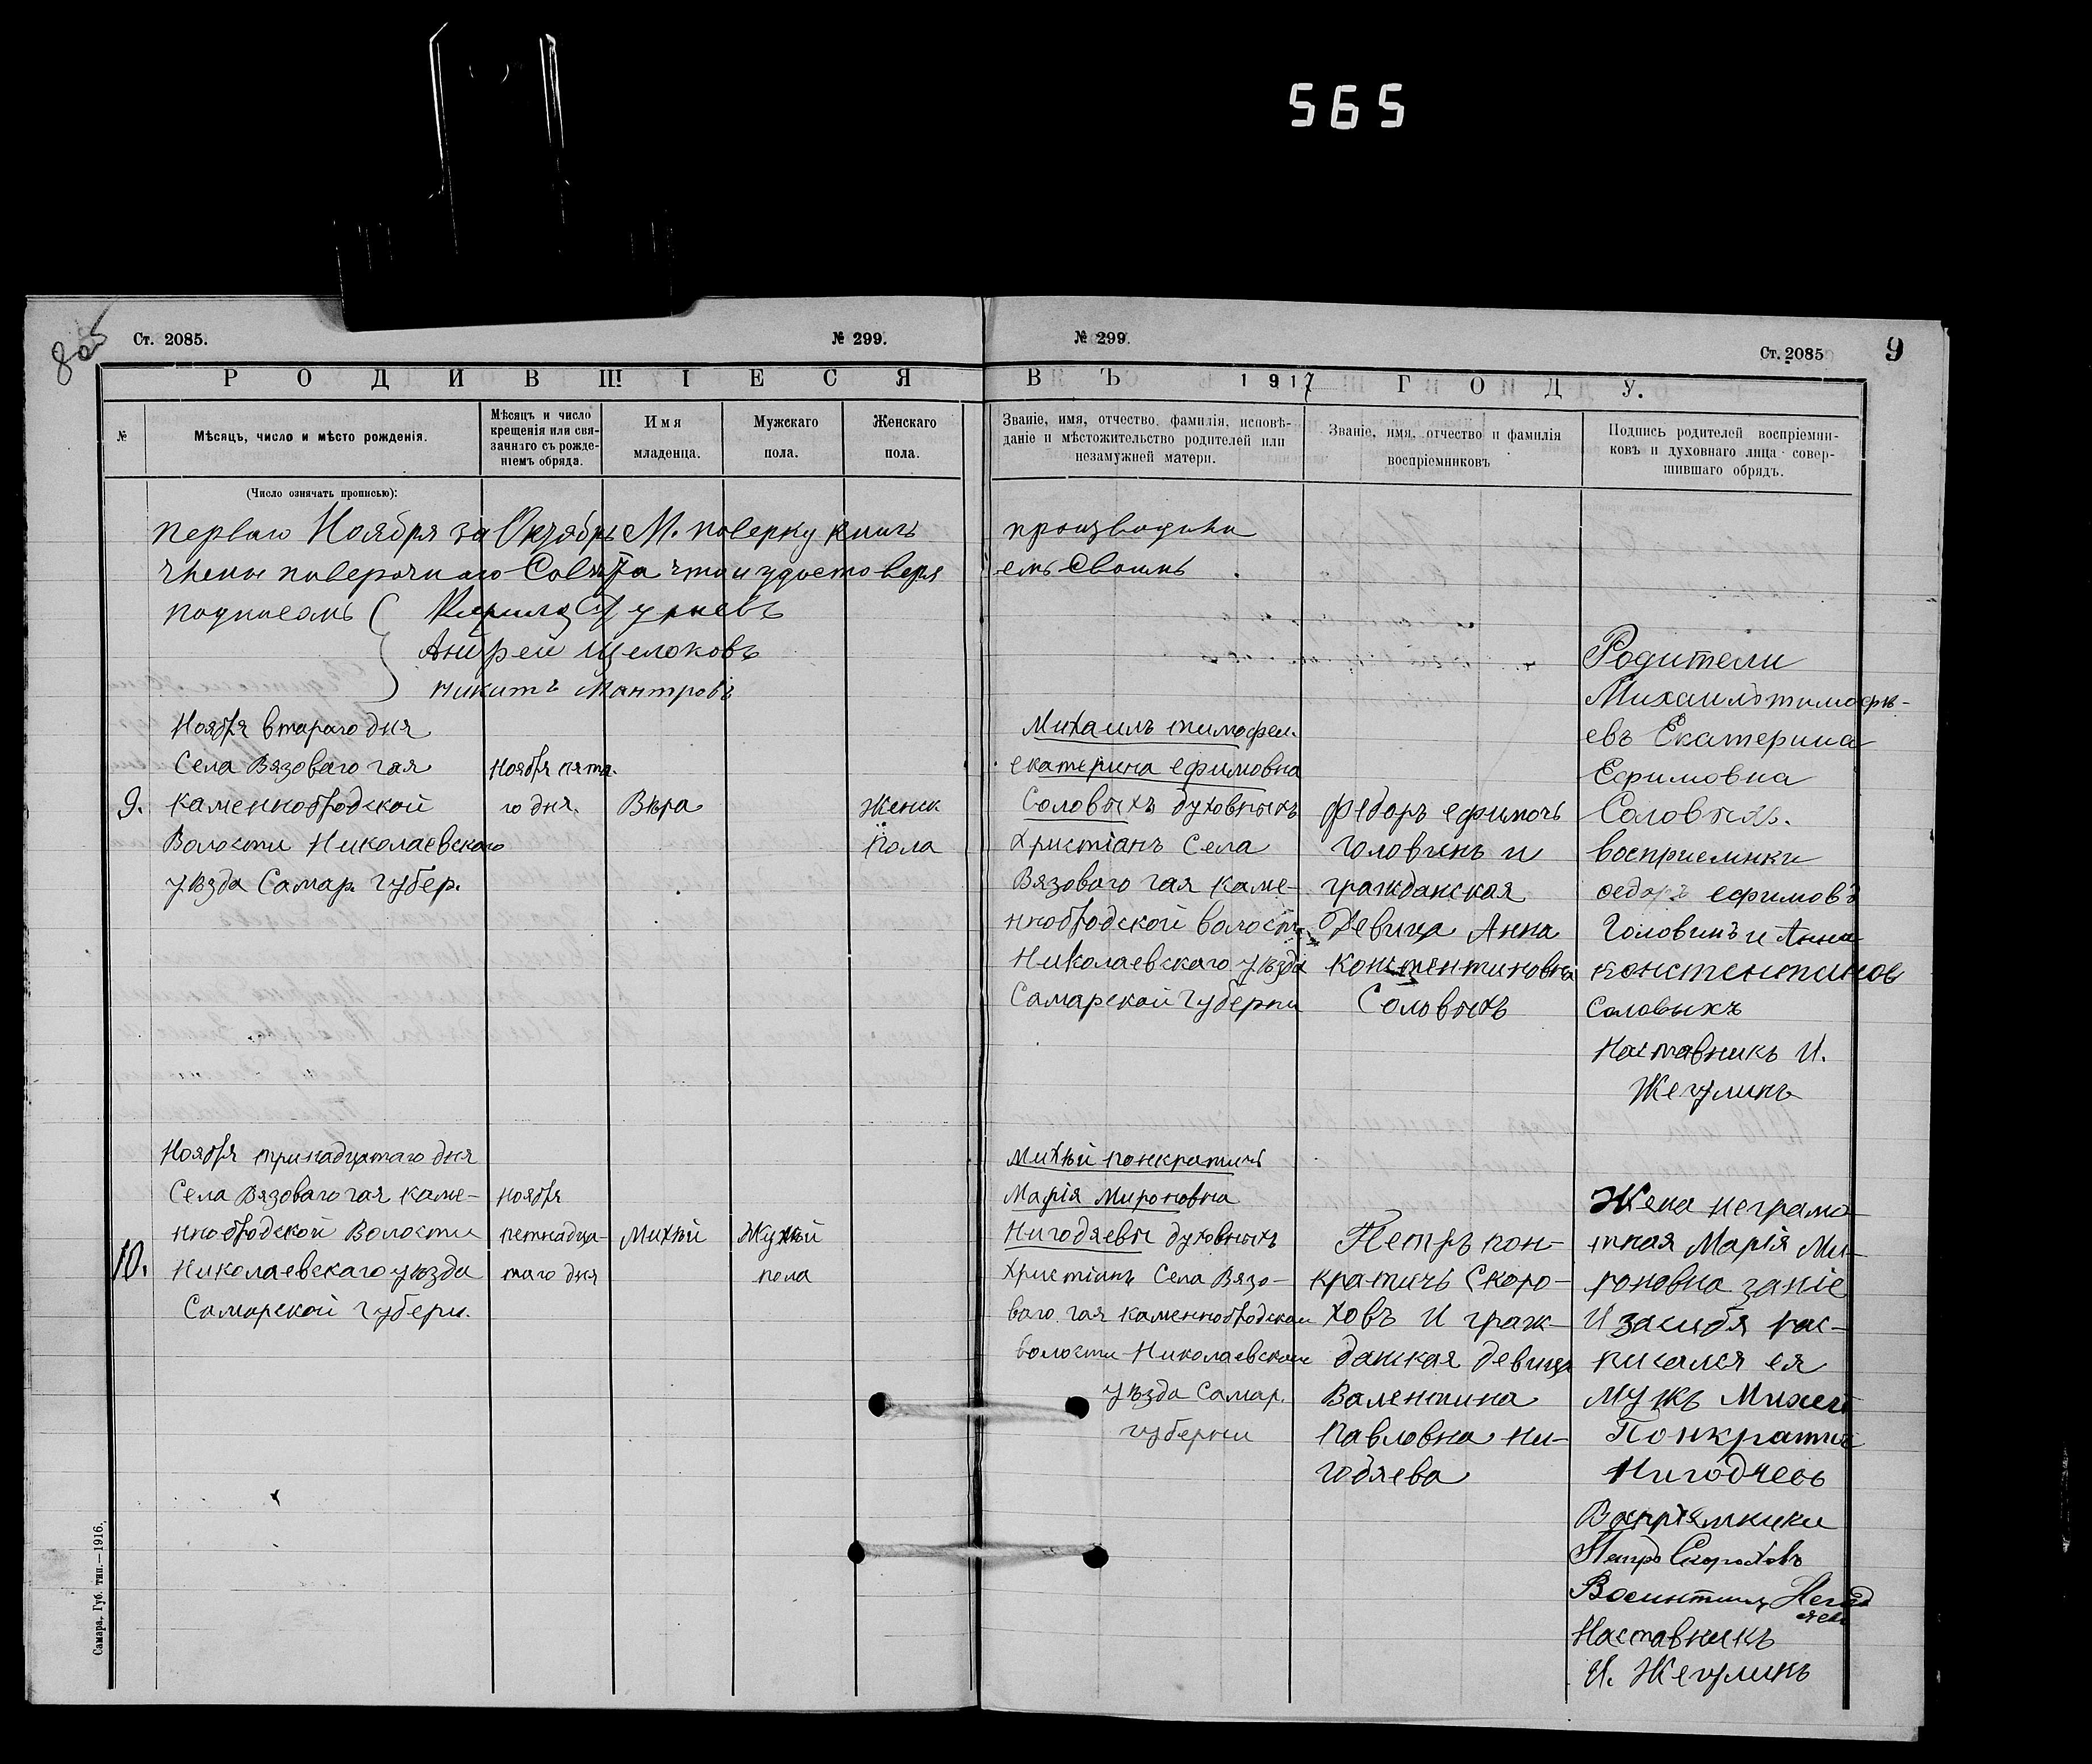 565
8об
Ст. 2085.
№ 299.
№ 299.
Ст. 2085
9
РОДИВШІЕСЯ
ВЪ 1917 ГОДУ.
№
Мѣсяцъ, число и мѣсто рожденія.
Мѣсяцъ и число
крещенія или свя-
заннаго съ рожде-
ніемъ обряда.
Имя
младенца.
Мужскаго
пола.
Женскаго
пола.
Званіе, имя, отчество, фамилія, исповѣ-
даніе и мѣстожительство родителей или
незамужней матери.
Званіе, имя, отчество и фамилія
воспріемниковъ
Подпись родителей воспріемни-
ковъ и духовнаго лица совер-
шившаго обрядъ.
(Число означать прописью):
перваго Ноября за Октябрь М. поверку книгъ
производили
члены поверочнаго Совѣта что и удостоверя
емъ Своимъ
подписомъ
Андрей Щелоковъ
никитъ Мантровъ
9.
Ноября втараго дня
Села Вязоваго гая
каменнобродской
Волости Николаевскаго
уѣзда Самар. губер.
Ноября пята-
го дня.
Вѣра
Женск
Пола
Михаилъ тимофеи.
екатерина ефимовна
Соловыхъ духовныхъ
Христіанъ Села
Вязоваго гая каме-
ннобродской волости
Николаевскаго уѣзда
Самарской Губерни
федоръ ефимочь
головинъ и
гражданская
Девица Анна
констентиновна
Соловыхъ
Родители
Михаилъ тимофѣ-
евъ Екатерина
Ефимовна
Соловыхъ.
восприемнки
федоръ ефимовъ
Головинъ и Анна
констентинов
Саловыхъ
Наставникъ И.
Жегулинъ
10.
Ноября тринадцатаго дня
Села Вязоваго гая каме-
ннобродской Волости
Николаевскаго уѣзда
Самарской губерн.
ноября
петнадца-
таго дня
Михѣй
Мужскй
пола
Михѣй понкратичь
Марія Мироновна
Нигодяевы духовныхъ
Христіанъ Села Вязо-
ваго гая каменнобродской
волости Николаевскаго
уѣзда Самар.
губерни
Петръ пон-
кратичь Скоро-
ховъ и граж-
данкая девица
Валентина
Павловна Ни-
годяева
Жена неграмо-
тная Марія Ми-
роновна заніе
И засибя рас-
писался ея
мужъ Михей
Понкратич
Нигодяевъ
Воспріемники
Петръ Скороховъ
Наставникъ
И. Жегулинъ
Самара, Губ. тип.—1916.